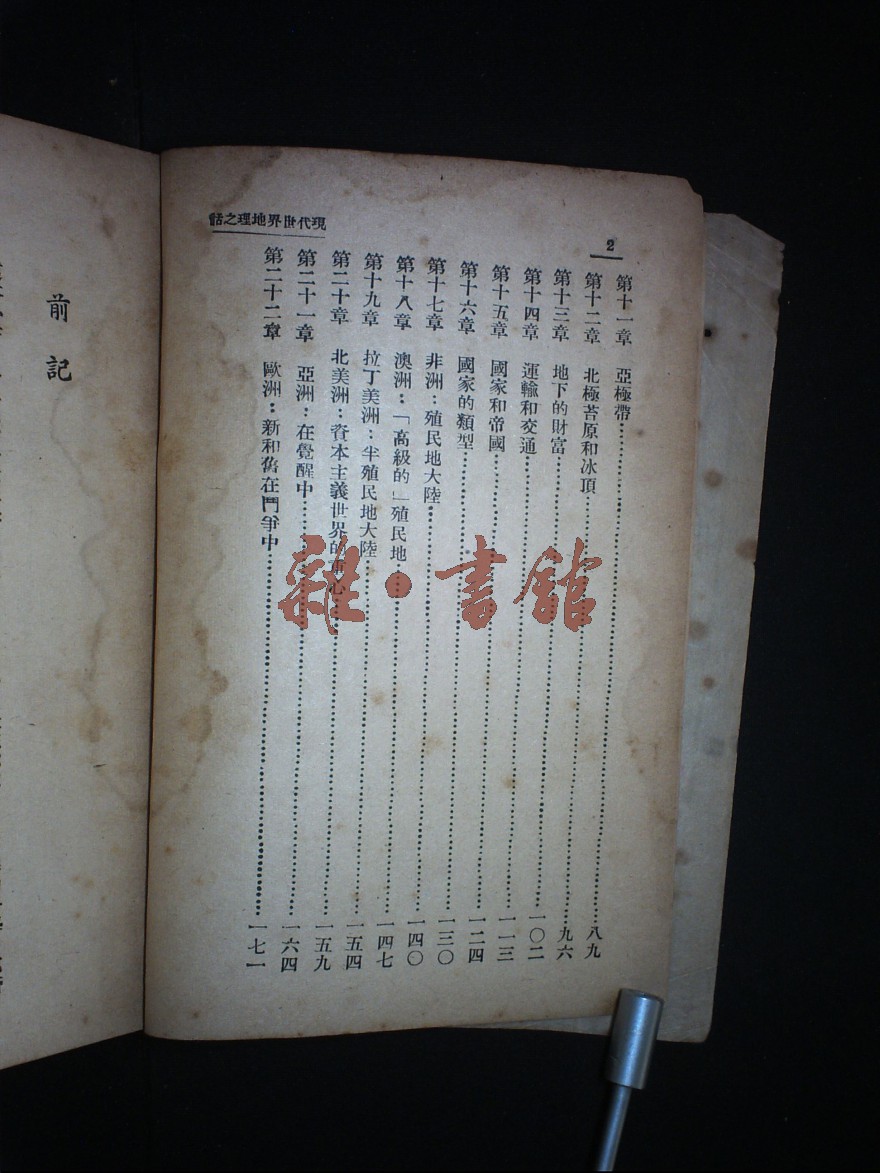 2
現代世界地理之話
第十一章 亞極帶……八九
第十二章 北極苔原和冰頂……九六
第十三章 地下的財富……一〇二
第十四章 運輸和交通……一一三
第十五章 國家和帝國……一二四
第十六章 國家的類型……一三〇
第十七章 非洲：殖民地大陸……一四〇
第十八章 澳洲：「高級的」殖民地……一四七
第十九章 拉丁美洲：半殖民地大陸……一五四
第二十章 北美洲：資本主義世界的重心……一五九
第二十一章 亞洲：在覺醒中……一六四
第二十二章 歐洲：新和舊在鬥爭中……一七一
前記
雜·書館